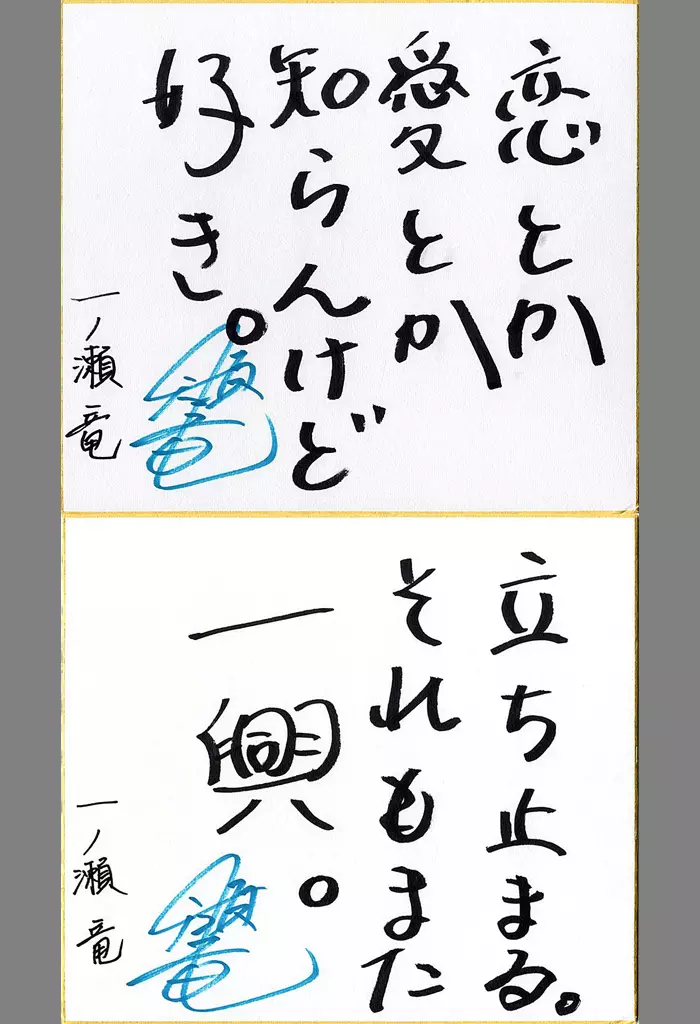 恋とか
愛とか
知らんけど
好き。
一ノ瀬竜
立ち止まる。
それもまた
一興。
一ノ瀬竜